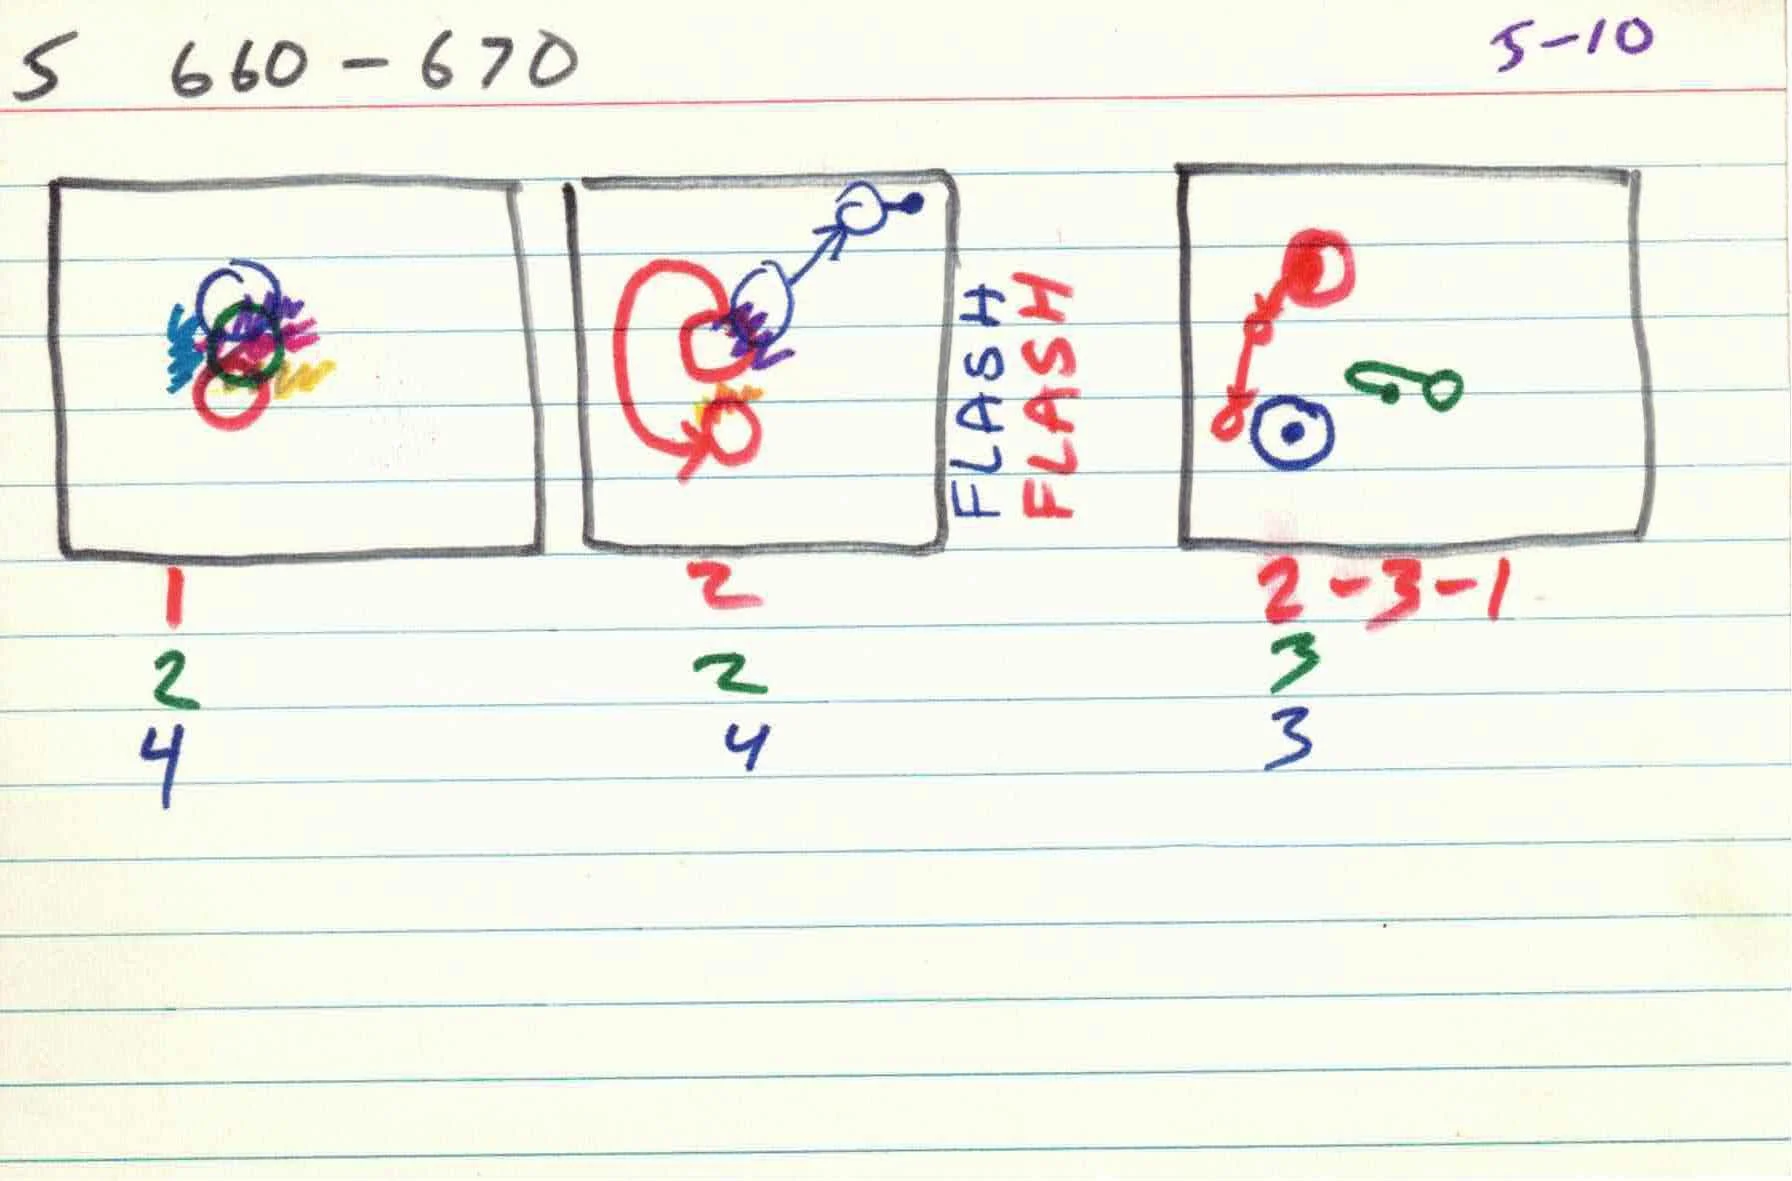 5 660-670 5-10
FLASH
FLASH
1 2 2-3-1
2 2 3
4 4 3